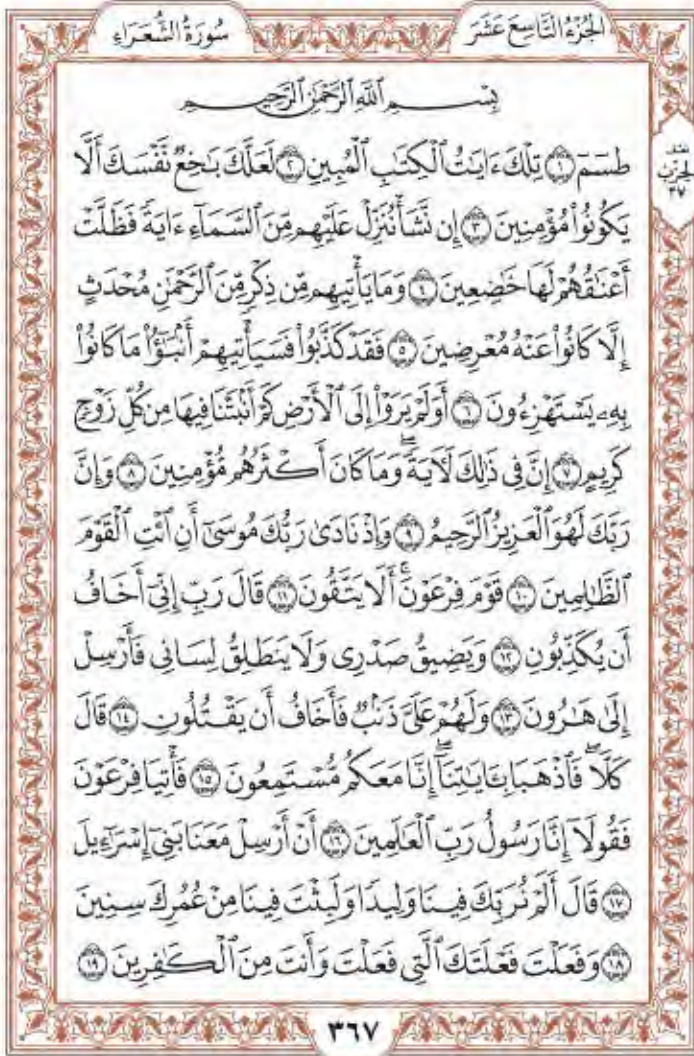 الجُزْءُ التَّاسِعَ عَشَرَ
سُورَةُ الشُّعَرَاءِ
بِسْمِ ٱللَّهِ ٱلرَّحْمَٰنِ ٱلرَّحِيمِ
طسٓمٓ ١ تِلْكَ ءَايَٰتُ ٱلْكِتَٰبِ ٱلْمُبِينِ ٢ لَعَلَّكَ بَٰخِعٌ نَّفْسَكَ أَلَّا
يَكُونُوا۟ مُؤْمِنِينَ ٣ إِن نَّشَأْ نُنَزِّلْ عَلَيْهِم مِّنَ ٱلسَّمَآءِ ءَايَةً فَظَلَّتْ
أَعْنَٰقُهُمْ لَهَا خَٰضِعِينَ ٤ وَمَا يَأْتِيهِم مِّن ذِكْرٍ مِّنَ ٱلرَّحْمَٰنِ مُحْدَثٍ
إِلَّا كَانُوا۟ عَنْهُ مُعْرِضِينَ ٥ فَقَدْ كَذَّبُوا۟ فَسَيَأْتِيهِمْ أَنۢبَٰٓؤُا۟ مَا كَانُوا۟
بِهِۦ يَسْتَهْزِءُونَ ٦ أَوَلَمْ يَرَوْا۟ إِلَى ٱلْأَرْضِ كَمْ أَنۢبَتْنَا فِيهَا مِن كُلِّ زَوْجٍ
كَرِيمٍ ٧ إِنَّ فِى ذَٰلِكَ لَءَايَةً ۖ وَمَا كَانَ أَكْثَرُهُم مُّؤْمِنِينَ ٨ وَإِنَّ
رَبَّكَ لَهُوَ ٱلْعَزِيزُ ٱلرَّحِيمُ ٩ وَإِذْ نَادَىٰ رَبُّكَ مُوسَىٰٓ أَنِ ٱئْتِ ٱلْقَوْمَ
ٱلظَّٰلِمِينَ ١٠ قَوْمَ فِرْعَوْنَ ۚ أَلَا يَتَّقُونَ ١١ قَالَ رَبِّ إِنِّىٓ أَخَافُ
أَن يُكَذِّبُونِ ١٢ وَيَضِيقُ صَدْرِى وَلَا يَنطَلِقُ لِسَانِى فَأَرْسِلْ
إِلَىٰ هَٰرُونَ ١٣ وَلَهُمْ عَلَىَّ ذَنۢبٌ فَأَخَافُ أَن يَقْتُلُونِ ١٤ قَالَ
كَلَّا ۖ فَٱذْهَبَا بِـَٔايَٰتِنَآ ۖ إِنَّا مَعَكُم مُّسْتَمِعُونَ ١٥ فَأْتِيَا فِرْعَوْنَ
فَقُولَآ إِنَّا رَسُولُ رَبِّ ٱلْعَٰلَمِينَ ١٦ أَنْ أَرْسِلْ مَعَنَا بَنِىٓ إِسْرَٰٓءِيلَ
١٧ قَالَ أَلَمْ نُرَبِّكَ فِينَا وَلِيدًا وَلَبِثْتَ فِينَا مِنْ عُمُرِكَ سِنِينَ
١٨ وَفَعَلْتَ فَعْلَتَكَ ٱلَّتِى فَعَلْتَ وَأَنتَ مِنَ ٱلْكَٰفِرِينَ ١٩
٣٦٧
الحِزْبِ
٣٧